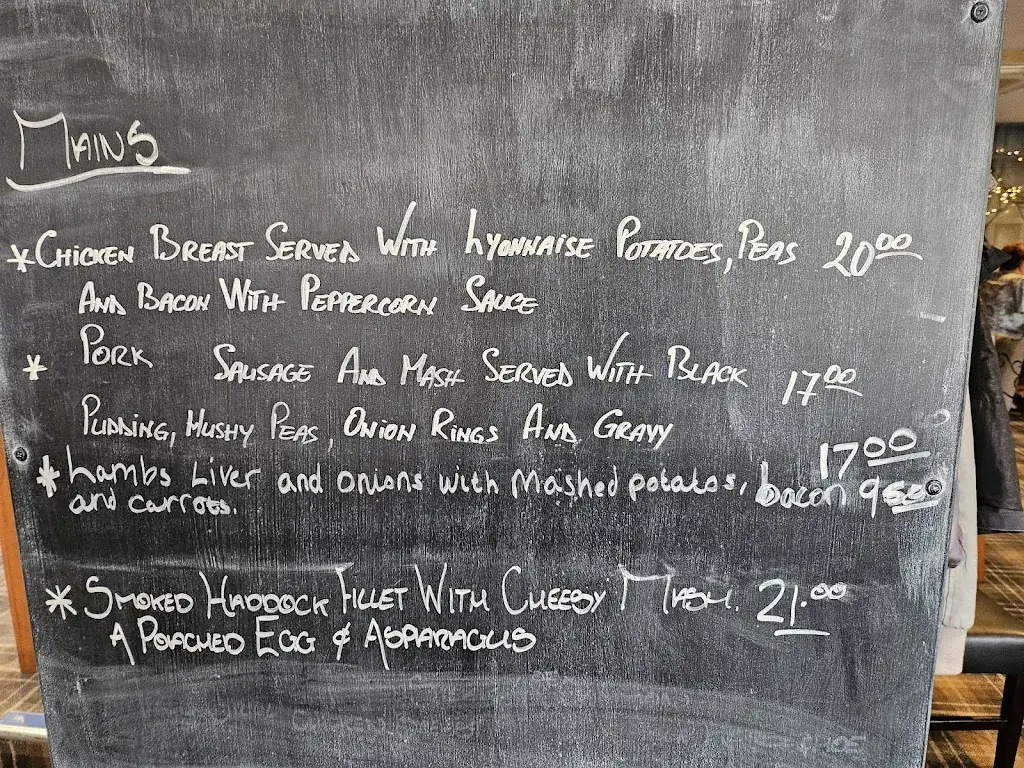 MAINS
*CHICKEN BREAST SERVED WITH LYONNAISE POTATOES, PEAS 20.00
AND BACON WITH PEPPERCORN SAUCE
* PORK SAUSAGE AND MASH SERVED WITH BLACK 17.00
PUDDING, MUSHY PEAS, ONION RINGS AND GRAVY
17.00
* Lambs Liver and onions with Mashed potatos, bacon 9.50
and carrots.
* SMOKED HADDOCK FILLET WITH CHEESY MASH. 21.00
A POACHED EGG & ASPARAGUS